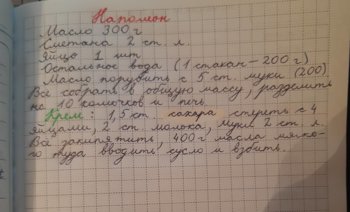 Наполеон
Масло 300 г
Сметана 2 ст. л.
Яйцо 1 шт.
Остальное вода (1 стакан - 200 г)
Масло порубить с 5 ст. муки (200)
Все собрать в общую массу, разделить
на 10 комочков и печь.
Крем: 1,5 ст. сахара стереть с 4
яйцами, 2 ст. молока, муки 2 ст. л.
Все закипятить, 400 г масла мягко-
го туда вводить, сусло и взбить.